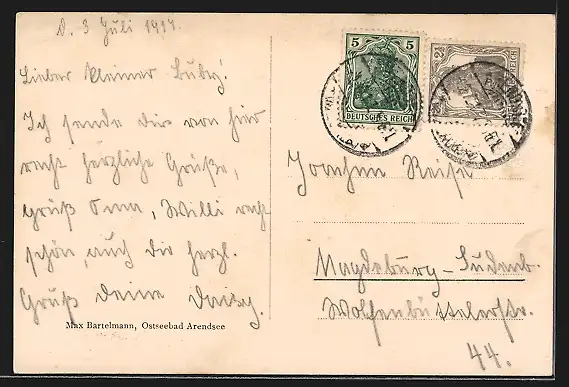 d. 3 Juli 1917.
Lieber kleiner Buby!
Ich sende dir von hier
recht herzliche Grüße,
grüß Oma, Willi recht
schön, auch dir herzl.
Gruß deine Daisy.
Max Bartelmann, Ostseebad Arendsee
5 5
DEUTSCHES REICH
2½
REICH
Joachim Reise
Magdeburg-Sudenb.
Wolfenbüttelerstr.
44.